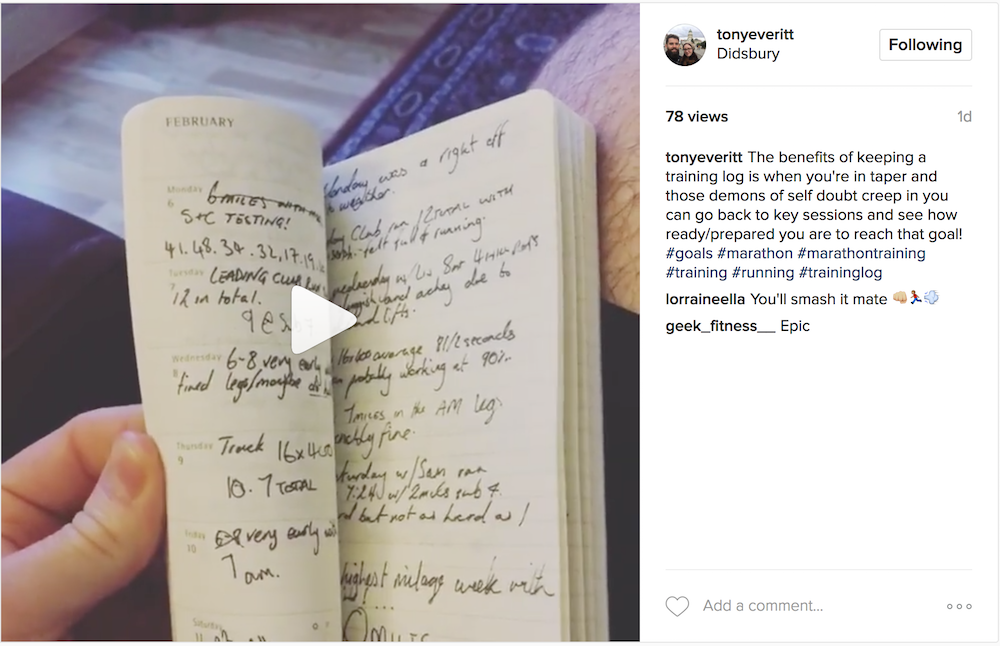 FEBRUARY
Monday
6
6 MILES WITH
S+C TESTING!
41.48.34.32,17.19.
Tuesday
7
LEADING CLUB RUN
12 in total.
9 @
Wednesday
8
6-8 very early
tired legs/maybe
Thursday
9
Track 16x400
10.7 TOTAL
Friday
10
6-8 very early
7 am.
Saturday
was a right off
weather.
Club run 12 TOTAL WITH
felt full of running.
w/ Liv 8
and achey due to
lifts.
16x400 average 81/2 seconds
probably working at 90%.
7 miles in the AM leg
fine.
w/ Sam ran
7:24 w/ 2 miles sub 7.
but not as hard as I
highest milage week with
tonyeveritt
Didsbury
Following
78 views
1d
tonyeveritt The benefits of keeping a
training log is when you're in taper and
those demons of self doubt creep in you
can go back to key sessions and see how
ready/prepared you are to reach that goal!
#goals #marathon #marathontraining
#training #running #traininglog
lorraineella You'll smash it mate 👊🏼🏃🏽💨
geek_fitness__ Epic
Add a comment...